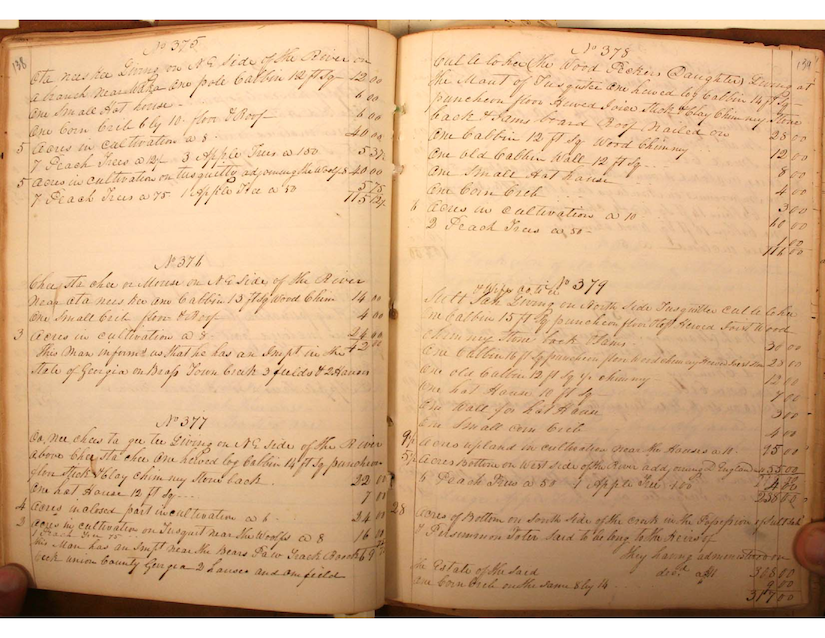 138
No 375
Ota nees kee Living on N.E side of the River on
a branch near one pole Cabbin 12 ft Sq 12 00
One Small Hot house 6 00
One Corn Crib 6 by 10 floor & Roof 6 00
5 Acres in Cultivation a 8 40 00
7 Peach Trees a 3 Apple Trees a 100 5 37
5 Acres in cultivation on Tusquitty adjoining the Woolf a 8 40 00
7 Peach Trees a 75 1 Apple Tree a 50 5 75
No 376
Chee sta chee or Mouse on N.E side of the River
near ota nees kee one Cabbin 13 ft Sq Wood Chim 14 00
One Small Crib floor & Roof 4 00
3 Acres in cultivation a 8 24 00
42 00
this Man informs us that he has an Impt in the
State of Georgia on Brass Town Creek 3 fields & 2 Houses
No 377
Living on N.E side of the River
above Chee sta chee One hewed log Cabbin 14 ft Sq puncheon
floor Stick & Clay chimney Stone back 22 00
One hot House 12 ft Sq 7 00
4 Acres in closed part in cultivation a 6 24 00
2 Acres in cultivation on Tusquit near the Woolfs a 8 16 00
1 Peach Tree 75
this Man has an Impt near the Bears Paw
Creek union County Georgia 2 houses and one field
139
No 378
Cul le lo hee (the Wood Peckers Daughter) Living at
the Mout of Tusquittee One hewed log Cabbin 14 ft Sq
puncheon floor Hewed Joice Stick & Clay Chimney Stone
back & Jams board Roof Nailed on 28 00
One Cabbin 12 ft Sq Wood Chimny 12 00
One old Cabbin Wall 12 ft Sq 8 00
One Small Hot house 4 00
One Corn Crib 3 00
6 Acres in Cultivations a 10 60 00
2 Peach Trees a 50 1 00
116 00
No 379
Living on North side Tusquittee
Cabbin 15 ft Sq puncheon floor Hewed Joist Wood
chimny Stone back Jams 30 00
One Cabbin 16 ft Sq puncheon floor
One old Cabbin 12 ft Sq chimny 12 00
One hot House 10 ft Sq 7 00
One Wall for hot House 3 00
One Small Corn Crib 4 00
9½ Acres upland in cultivation near the Houses a 10 95 00
5½ Acres Bottom on West side of the River addjoining England a 55 00
6 Peach Trees a 50 1 Apple Tree 100 4 00
28 Acres of Bottom on South side of the creek in the Possession of
Said to belong to the Heirs of
they having administered on
the Estate of the said 308 00
one Corn Crib on the same 8 by 14 9 00
317 00